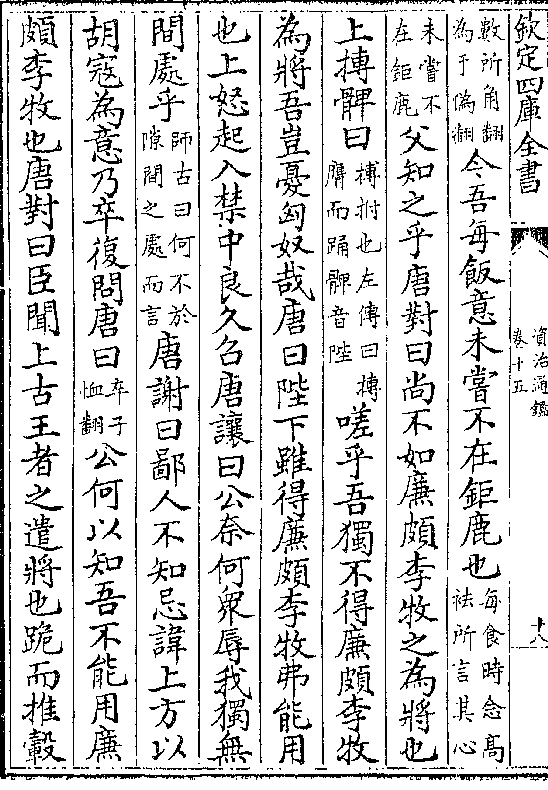 欽定四庫全書
資治通鑑
卷十五
十八
數所角翻
為于偽翻
今吾每飯意未嘗不在鉅鹿也
每食時念高
袪所言其心
未嘗不
在鉅鹿
父知之乎唐對曰尚不如廉頗李牧之為將也
上搏髀曰
搏拊也左傳曰搏
膺而踊髀音陛
嗟乎吾獨不得廉頗李牧
為將吾豈憂匈奴哉唐曰陛下雖得廉頗李牧弗能用
也上怒起入禁中良久召唐讓曰公奈何衆辱我獨無
間處乎
師古曰何不於
隙間之處而言
唐謝曰鄙人不知忌諱上方以
胡寇為意乃卒復問唐曰
卒子
恤翻
公何以知吾不能用廉
頗李牧也唐對曰臣聞上古王者之遣將也跪而推轂